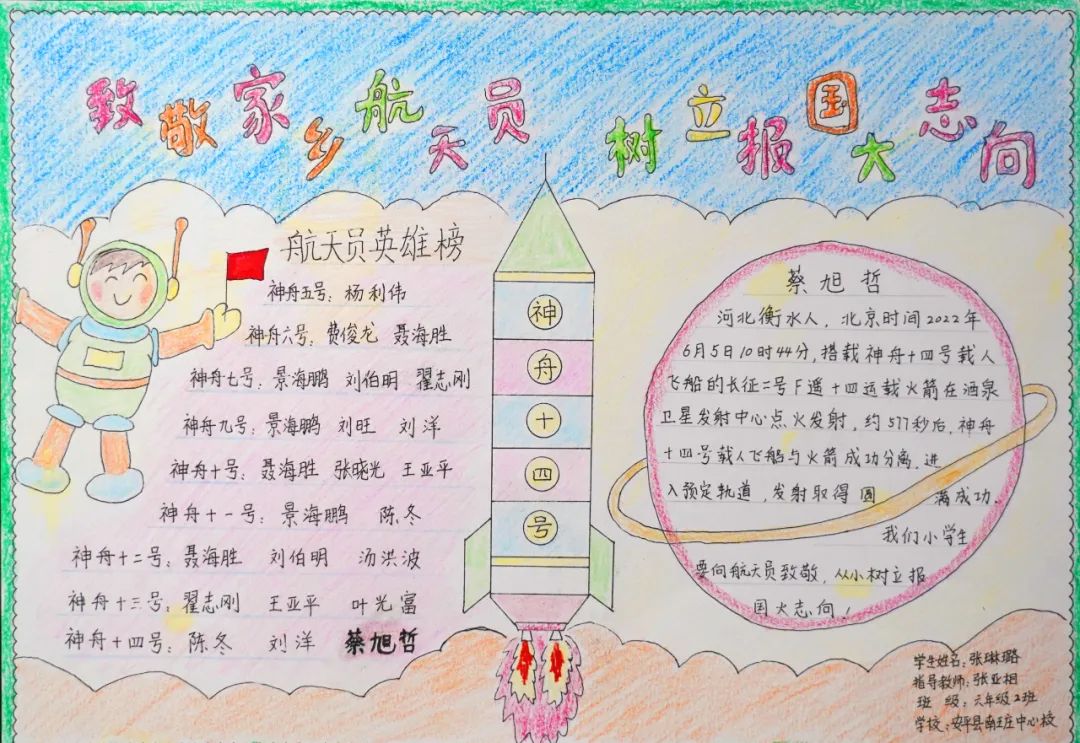 致敬家乡航天员 树立报国大志向
航天员英雄榜
神舟五号：杨利伟
神舟六号：费俊龙 聂海胜
神舟七号：景海鹏 刘伯明 翟志刚
神舟九号：景海鹏 刘旺 刘洋
神舟十号：聂海胜 张晓光 王亚平
神舟十一号：景海鹏 陈冬
神舟十二号：聂海胜 刘伯明 汤洪波
神舟十三号：翟志刚 王亚平 叶光富
神舟十四号：陈冬 刘洋 蔡旭哲
神
舟
十
四
号
蔡旭哲
河北衡水人，北京时间2022年
6月5日10时44分，搭载神舟十四号载人
飞船的长征二号F遥十四运载火箭在酒泉
卫星发射中心点火发射，约577秒后，神舟
十四号载人飞船与火箭成功分离，进
入预定轨道，发射取得圆满成功。
我们小学生
要向航天员致敬，从小树立报
国大志向！
学生姓名：张琳璐
指导教师：张亚相
班级：六年级2班
学校：安平县南王庄中心校